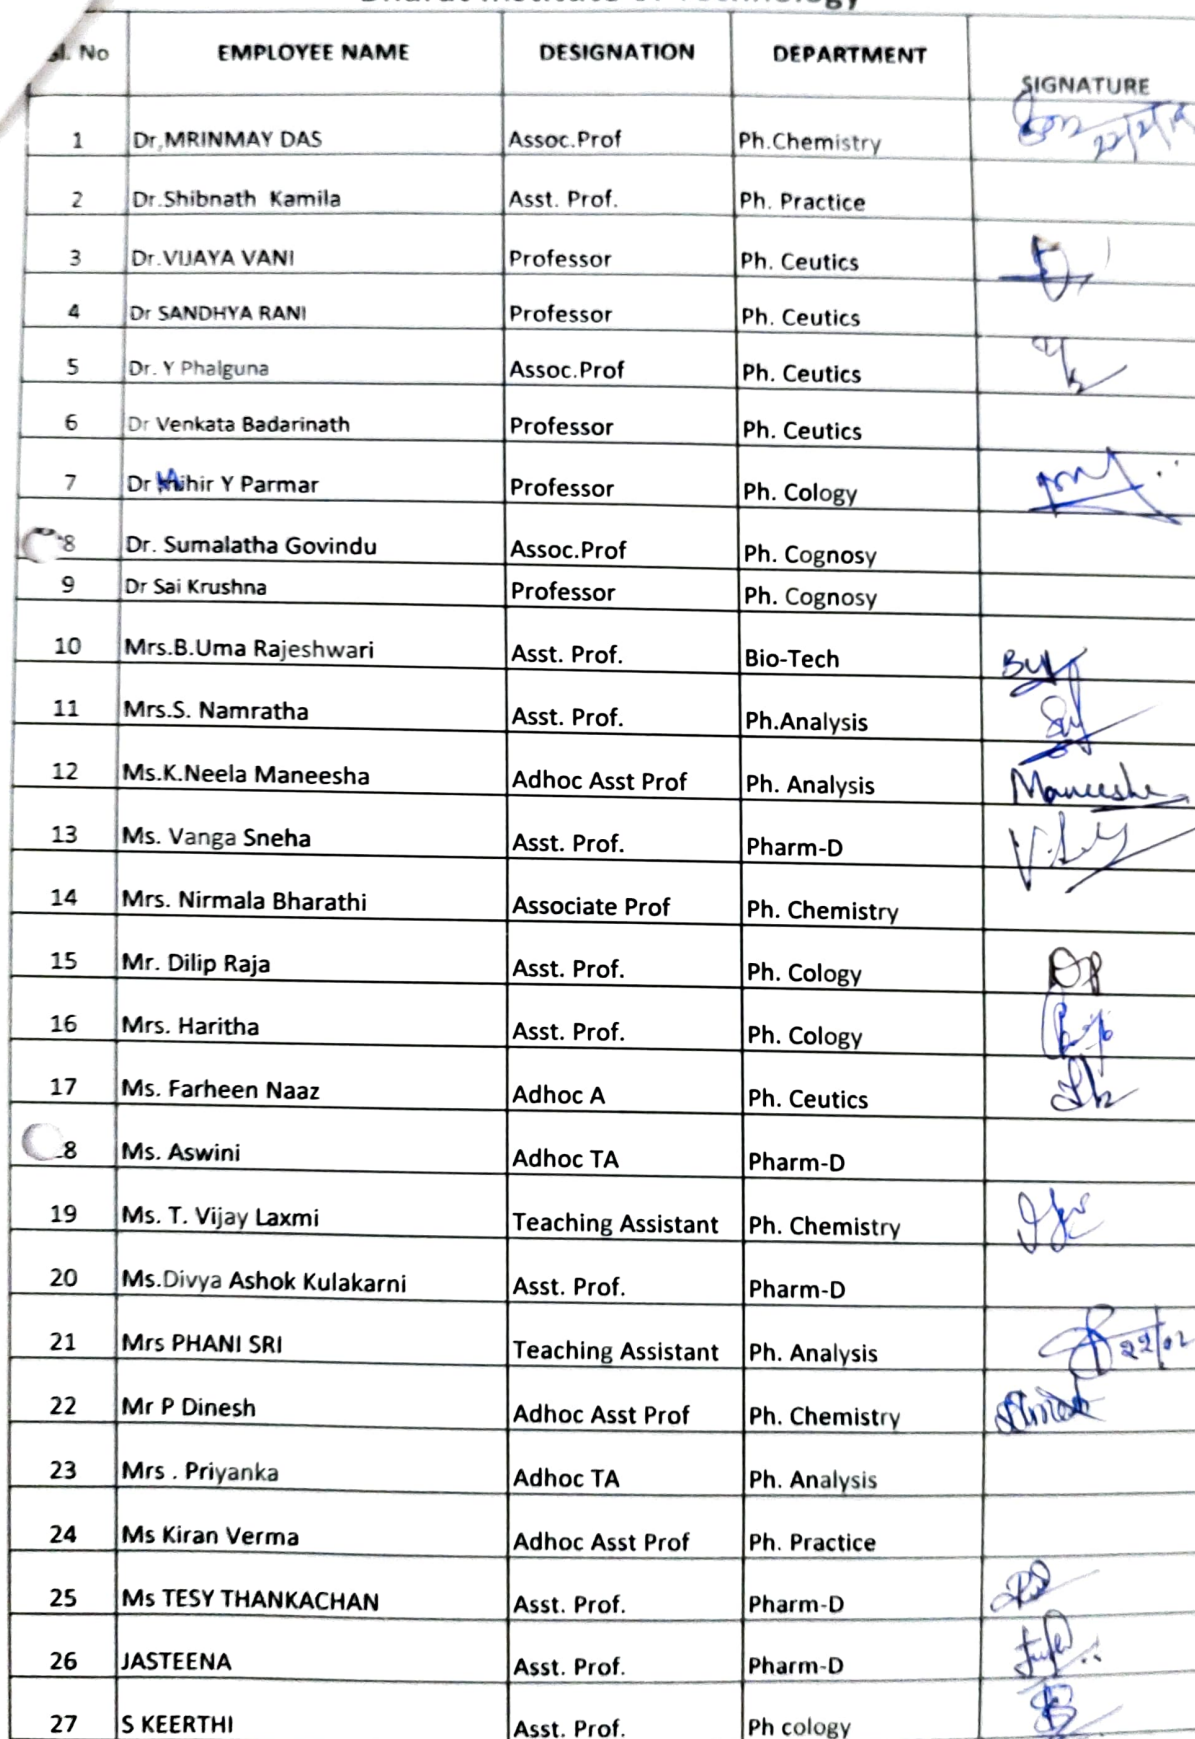 Bharat Institute of Technology
Sl. No EMPLOYEE NAME DESIGNATION DEPARTMENT SIGNATURE
1 Dr,MRINMAY DAS Assoc.Prof Ph.Chemistry
2 Dr.Shibnath Kamila Asst. Prof. Ph. Practice
3 Dr.VIJAYA VANI Professor Ph. Ceutics
4 Dr SANDHYA RANI Professor Ph. Ceutics
5 Dr. Y Phalguna Assoc.Prof Ph. Ceutics
6 Dr Venkata Badarinath Professor Ph. Ceutics
7 Dr Mihir Y Parmar Professor Ph. Cology
8 Dr. Sumalatha Govindu Assoc.Prof Ph. Cognosy
9 Dr Sai Krushna Professor Ph. Cognosy
10 Mrs.B.Uma Rajeshwari Asst. Prof. Bio-Tech
11 Mrs.S. Namratha Asst. Prof. Ph.Analysis
12 Ms.K.Neela Maneesha Adhoc Asst Prof Ph. Analysis Maneesha
13 Ms. Vanga Sneha Asst. Prof. Pharm-D
14 Mrs. Nirmala Bharathi Associate Prof Ph. Chemistry
15 Mr. Dilip Raja Asst. Prof. Ph. Cology
16 Mrs. Haritha Asst. Prof. Ph. Cology
17 Ms. Farheen Naaz Adhoc A Ph. Ceutics
8 Ms. Aswini Adhoc TA Pharm-D
19 Ms. T. Vijay Laxmi Teaching Assistant Ph. Chemistry
20 Ms.Divya Ashok Kulakarni Asst. Prof. Pharm-D
21 Mrs PHANI SRI Teaching Assistant Ph. Analysis 22/02
22 Mr P Dinesh Adhoc Asst Prof Ph. Chemistry
23 Mrs . Priyanka Adhoc TA Ph. Analysis
24 Ms Kiran Verma Adhoc Asst Prof Ph. Practice
25 Ms TESY THANKACHAN Asst. Prof. Pharm-D
26 JASTEENA Asst. Prof. Pharm-D
27 S KEERTHI Asst. Prof. Ph cology